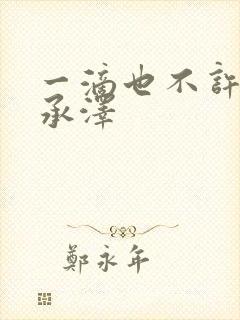 一滴也不許
承澤
鄭永年